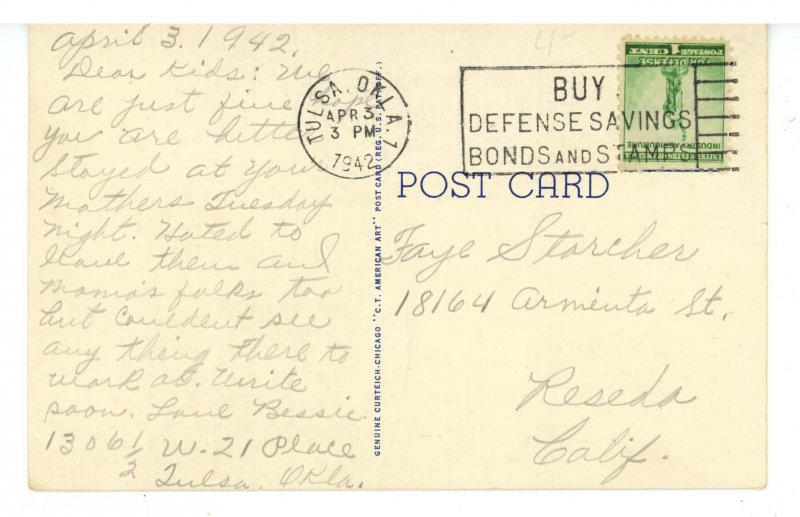 April 3, 1942.
Dear Kids: We
are just fine hope
you are better
Stayed at your
Mothers Tuesday
night. Hated to
leave them and
Mama's folks too
but couldent see
any thing there to
work at. Write
soon. Love Bessie
1306 1/2 W. 21 Place
Tulsa, Okla.
TULSA, OKLA. 1
APR 3
3 PM
1942
BUY
DEFENSE SAVINGS
BONDS AND STAMPS
POSTAGE 1 CENT
FOR DEFENSE
INDUSTRY AGRICULTURE
POST CARD
GENUINE CURTEICH-CHICAGO "C.T. AMERICAN ART" POST CARD (REG. U.S. PAT. OFF.)
Faye Storcher
18164 Arminta St.
Reseda
Calif.